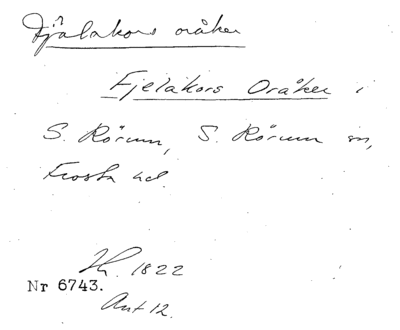 Fjälakors oråker
Fjelakors Oråker i
S. Rörum, S. Rörum sn,
Frosta hd.
Th. 1822
Nr 6743.
Ant 12.